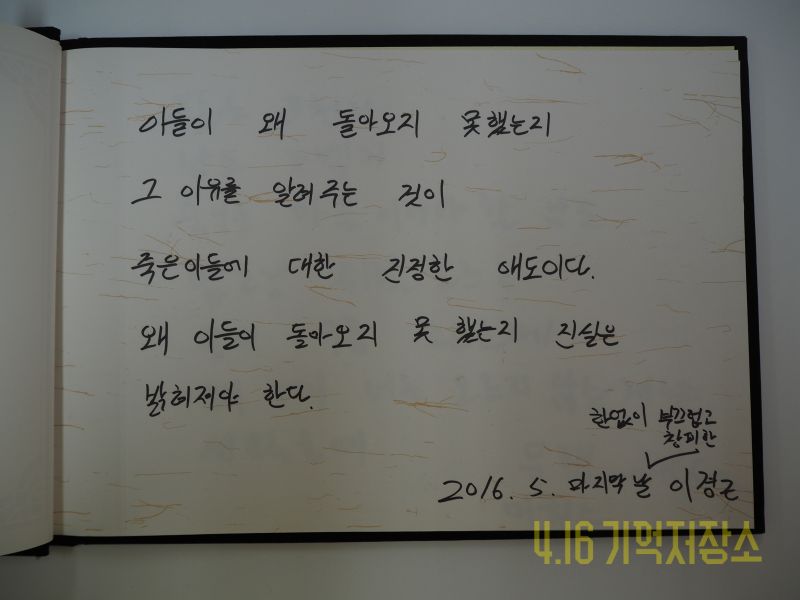 아들이 왜 돌아오지 못했는지
그 이유를 알려주는 것이
죽은이들에 대한 진정한 애도이다.
왜 이들이 돌아오지 못 했는지 진실은
밝혀져야 한다.
한없이 부끄럽고
창피한
2016. 5. 마지막 날 이경근
4.16 기억저장소